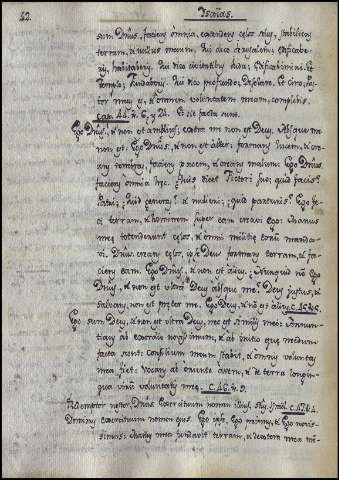 22.
Isaías.
sum Dnūs, faciens omnia, extendens celos solus, stabiliens
terram, & nullus mecum. Qui dico Jerusalem:
habitaberis. Qui dico civitatibus Juda: Ædificabimini. Et
templo: Fundaberis. Qui dico profundo: Desolare. Et Ciro: Pas-
tor meus es, & omnem voluntatem meam complebis.
cap. 44. Et sic facta sunt.
Ego Dnūs, & non est amplius; extra me non est Deus. Absque me
non est. Ego Dnūs, & non est alter; formans lucem, & cre-
ans tenebras, faciens pacem, & creans malum: Ego Dnūs
faciens omnia hec. Quis dicet Fictori suo; quid facis?
Patri; quid generas? & mulieri; quid parturis? Ego fe-
ci terram, & hominem super eam creavi ego: Manus
mee tetenderunt celos, & omni militie eorum manda-
vi. Dnūs creans celos, ipse Deus formans terram, & fa-
ciens eam. Ego Dnūs, & non est alius. Nunquid non Ego
Dnūs, & non est ultra Deus absque me? Deus justus, &
salvans, non est preter me. Ego Deus, & nō est alius. c. 45.
Ego sum Deus, & non est ultra Deus, nec est similis mei: Annun-
tians ab exordio novissimum, & ab initio que nondum
facta sunt: Consilium meum stabit, & omnis voluntas
mea fiet: Vocans ab oriente avem, & de terra longin-
qua virum voluntatis mee. c. 46.
Redemptor noster, Dnūs exercituum nomen illius, Stus. Israel. c. 47.
Dominus exercituum nomen ejus. Ego ipse, Ego primus, & Ego novis-
simus: Manus mea fundavit terram, & dextera mea